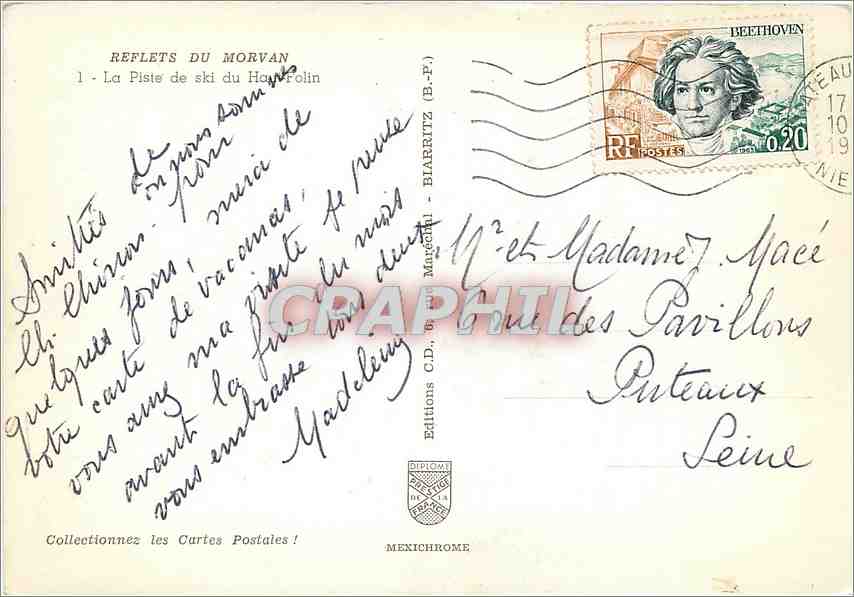 REFLETS DU MORVAN
1 - La Piste de ski du Haut Folin
Amitiés de
Ch. Chinon. où nous sommes pour
quelques jours, merci de
votre carte de vacances,
vous aurez ma visite je pense
avant la fin du mois
vous embrasse tous deux
Madeleine
Editions C.D., 6, rue Maréchal - BIARRITZ (B.-P.)
BEETHOVEN
RF POSTES 1963 0,20
ATEAU
17
10
19
NIE
Mr et Madame J. Macé
Tour des Pavillons
Puteaux
Seine
CRAPHIL
DIPLOME
PRESTIGE
DE LA
FRANCE
Collectionnez les Cartes Postales !
MEXICHROME